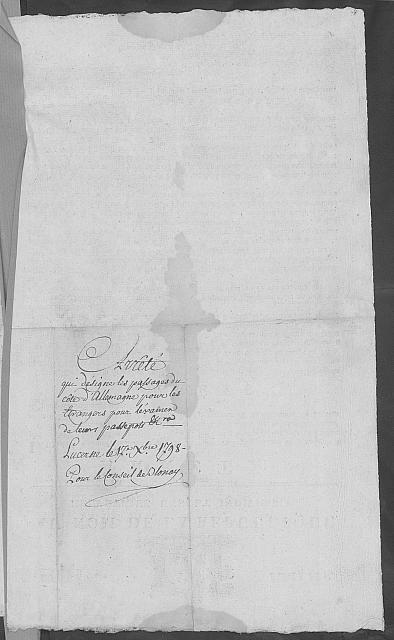 Arrêté
qui designe les passages du
côté d'Allemagne pour les
étrangers pour l'examen
de leurs passeports &cra
Lucerne le 17e Xbre 1798 -
Pour le Conseil de Blonay